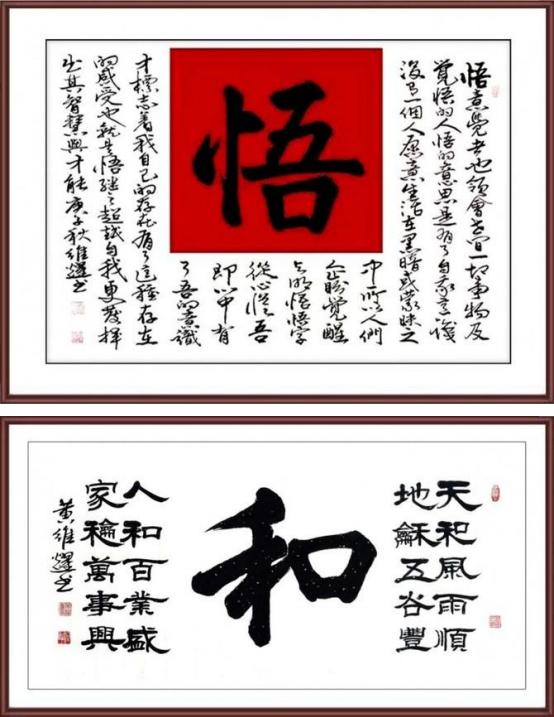 悟意覺者也領會世間一切事物及
覺悟的人悟的意思是有了自我意識
沒有一個人願意生活在黑暗或蒙昧之
中所以人們
企盼覺醒
與明悟悟字
從心從吾
即心中有
了吾的意識
悟
才標志着我自己的存在有了這種存在
的感受也就是悟繼之超越自我更發揮
出其智慧與才能庚子秋維燿书
天和風雨順
地龢五谷豐
和
人和百業盛
家萬事興
黄維燿书